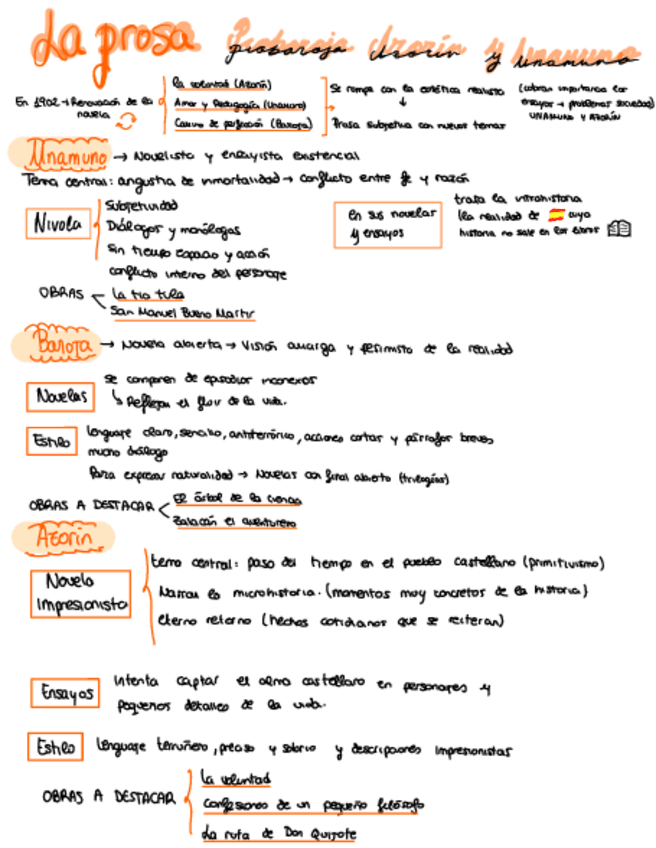 La prosa Pío baroja Azorín y Unamuno
En 1902 → Renovación de la novela
La voluntad (Azorín)
Amor y Pedagogía (Unamuno)
Camino de perfección (Baroja)
Se rompe con la estética realista
↓
Prosa subjetiva con nuevos temas
(cobran importancia los
ensayos → problemas sociedad)
UNAMUNO Y AZORÍN
Unamuno → Novelista y ensayista existencial
Tema central: angustia de inmortalidad → conflicto entre fe y razón
Nivola
Subjetividad
Diálogos y monólogos
Sin tiempo espacio y acción
conflicto interno del personaje
en sus novelas
y ensayos
trata la intrahistoria
(la realidad de 🇪🇸 cuya
historia no sale en los libros 📖
OBRAS
La tía tula
San Manuel Bueno Martir
Baroja → Novela abierta → Visión amarga y pesimista de la realidad
Novelas
se componen de episodios inconexos
↳ Reflejan el fluir de la vida.
Estilo
lenguaje claro, sencillo, antirretórico, acciones cortas y párrafos breves
mucho diálogo
Para expresar naturalidad → Novelas con final abierto (trilogías)
OBRAS A DESTACAR
El árbol de la ciencia
Zalacaín el aventurero
Azorín
Novela
Impresionista
tema central: paso del tiempo en el pueblo castellano (primitivismo)
Narran la microhistoria. (momentos muy concretos de la historia)
eterno retorno (hechos cotidianos que se reiteran)
Ensayos
Intenta captar el alma castellano en personajes y
pequeños detalles de la vida.
Estilo
lenguaje terruñero, preciso y sobrio y descripciones impresionistas
OBRAS A DESTACAR
La voluntad
Confesiones de un pequeño filósofo
La ruta de Don Quijote